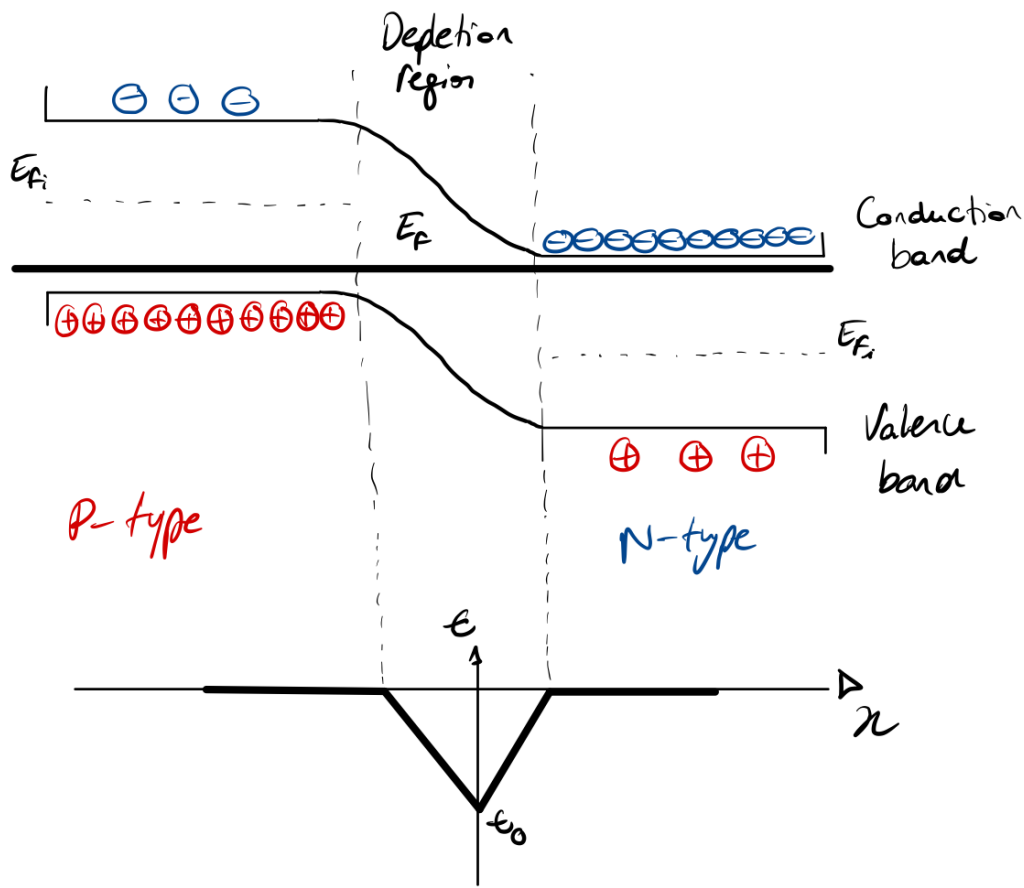 Depletion
region
⊖ ⊖ ⊖
E_Fi
E_F
⊖⊖⊖⊖⊖⊖⊖⊖⊖
Conduction
band
⊕⊕⊕⊕⊕⊕⊕⊕⊕⊕
E_Fi
Valence
band
⊕ ⊕ ⊕
P-type
N-type
ϵ
x
ϵ_0